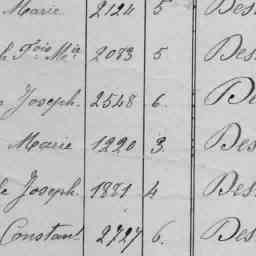 Marie 2124 5 Des
Fois Mie 2073 5 Des
Joseph 2548 6. De
Marie 1220 3. Des
Joseph. 1881 4 Des
Constant 2727 6. Des